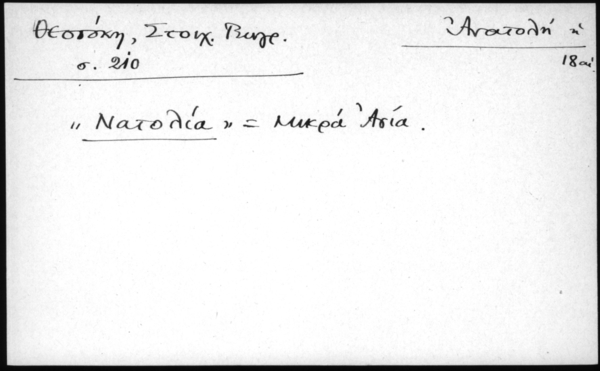 Θεοτόκη, Στοιχ. Γεωγρ.
σ. 210
Ἀνατολή ἡ
18 αἰ.
"Νατολία" = Μικρά Ἀσία.